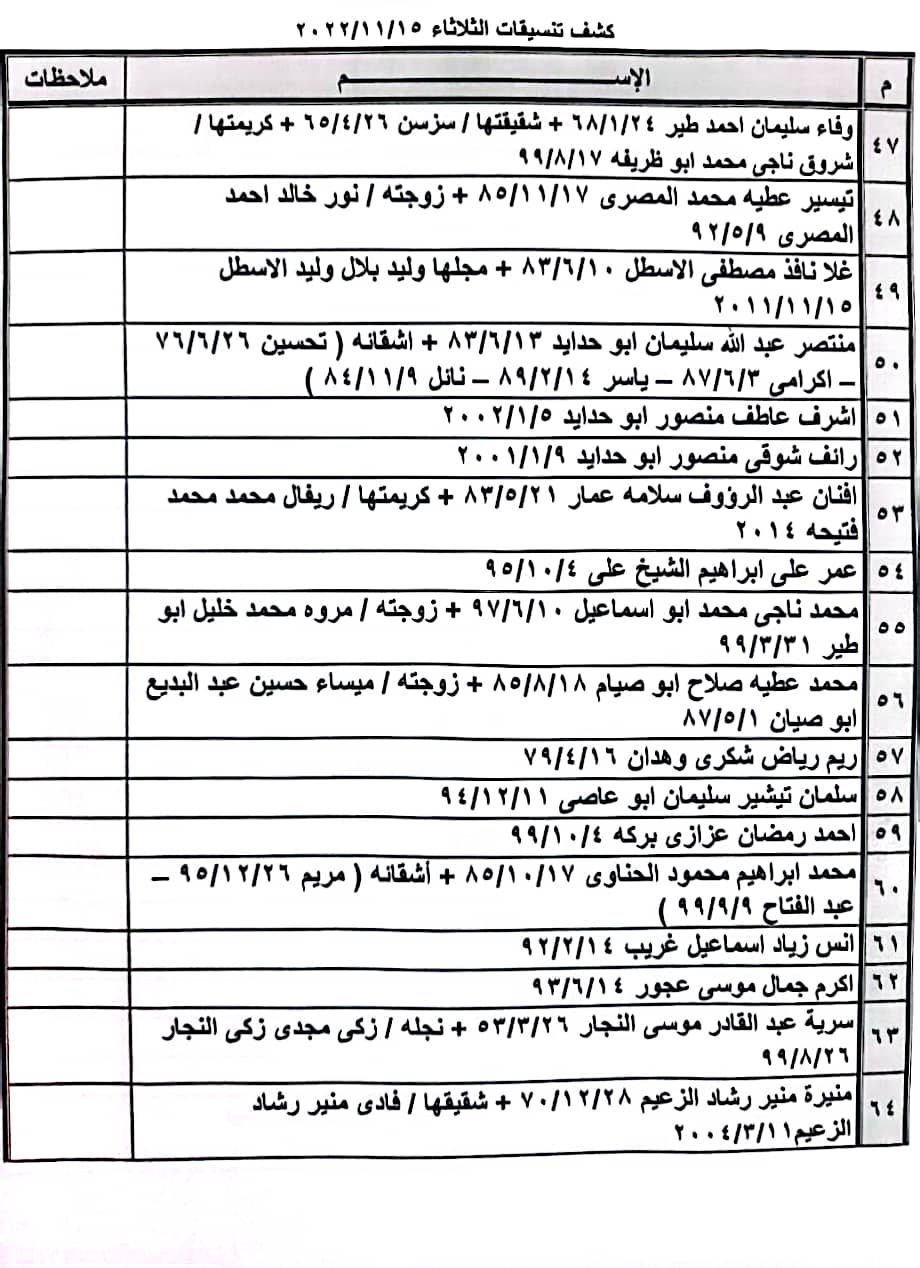 كشف تنسيقات الثلاثاء ٢٠٢٢/١١/١٥
م الإســــــــــــــــــــــم ملاحظات
٤٧ وفاء سليمان احمد طير ٦٨/١/٢٤ + شقيقتها / سزسن ٦٥/٤/٢٦ + كريمتها /
شروق ناجى محمد ابو ظريفه ٩٩/٨/١٧
٤٨ تيسير عطيه محمد المصرى ٨٥/١١/١٧ + زوجته / نور خالد احمد
المصرى ٩٢/٥/٩
٤٩ غلا نافذ مصطفى الاسطل ٨٣/٦/١٠ + مجلها وليد بلال وليد الاسطل
٢٠١١/١١/١٥
٥٠ منتصر عبد الله سليمان ابو حدايد ٨٣/٦/١٣ + اشقانه ( تحسين ٧٦/٦/٢٦
– اكرامى ٨٧/٦/٣ – ياسر ٨٩/٢/١٤ – نانل ٨٤/١١/٩ )
٥١ اشرف عاطف منصور ابو حدايد ٢٠٠٢/١/٥
٥٢ رانف شوقى منصور ابو حدايد ٢٠٠١/١/٩
٥٣ افنان عبد الرؤوف سلامه عمار ٨٣/٥/٢١ + كريمتها / ريفال محمد محمد
فتيحه ٢٠١٤
٥٤ عمر على ابراهيم الشيخ على ٩٥/١٠/٤
٥٥ محمد ناجى محمد ابو اسماعيل ٩٧/٦/١٠ + زوجته / مروه محمد خليل ابو
طير ٩٩/٣/٣١
٥٦ محمد عطيه صلاح ابو صيام ٨٥/٨/١٨ + زوجته / ميساء حسين عبد البديع
ابو صيان ٨٧/٥/١
٥٧ ريم رياض شكرى وهدان ٧٩/٤/١٦
٥٨ سلمان تيشير سليمان ابو عاصى ٩٤/١٢/١١
٥٩ احمد رمضان عزازى بركه ٩٩/١٠/٤
٦٠ محمد ابراهيم محمود الحناوى ٨٥/١٠/١٧ + أشقانه ( مريم ٩٥/١٢/٢٦ –
عبد الفتاح ٩٩/٩/٩ )
٦١ انس زياد اسماعيل غريب ٩٢/٢/١٤
٦٢ اكرم جمال موسى عجور ٩٣/٦/١٤
٦٣ سرية عبد القادر موسى النجار ٥٣/٣/٢٦ + نجله / زكى مجدى زكى النجار
٩٩/٨/٢٦
٦٤ منيرة منير رشاد الزعيم ٧٠/١٢/٢٨ + شقيقها / فادى منير رشاد
الزعيم٢٠٠٤/٣/١١